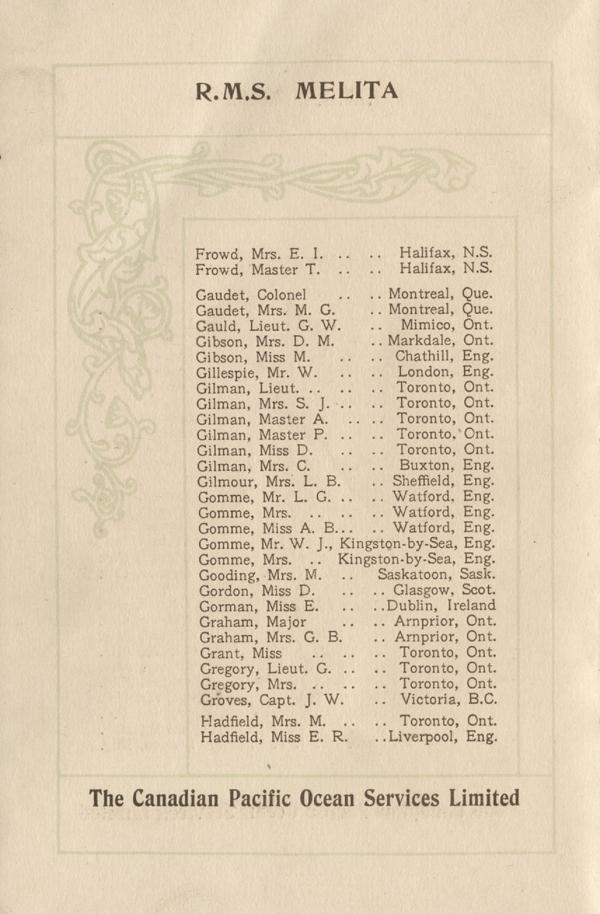 R.M.S. MELITA
Frowd, Mrs. E. I. .. .. Halifax, N.S.
Frowd, Master T. .. .. Halifax, N.S.
Gaudet, Colonel .. .. Montreal, Que.
Gaudet, Mrs. M. G. .. Montreal, Que.
Gauld, Lieut. G. W. .. Mimico, Ont.
Gibson, Mrs. D. M. .. Markdale, Ont.
Gibson, Miss M. .. .. Chathill, Eng.
Gillespie, Mr. W. .. .. London, Eng.
Gilman, Lieut. .. .. .. Toronto, Ont.
Gilman, Mrs. S. J. .. .. Toronto, Ont.
Gilman, Master A. .. .. Toronto, Ont.
Gilman, Master P. .. .. Toronto, Ont.
Gilman, Miss D. .. .. Toronto, Ont.
Gilman, Mrs. C. .. .. Buxton, Eng.
Gilmour, Mrs. L. B. .. Sheffield, Eng.
Gomme, Mr. L. G. .. .. Watford, Eng.
Gomme, Mrs. .. .. .. Watford, Eng.
Gomme, Miss A. B... .. Watford, Eng.
Gomme, Mr. W. J., Kingston-by-Sea, Eng.
Gomme, Mrs. .. Kingston-by-Sea, Eng.
Gooding, Mrs. M. .. Saskatoon, Sask.
Gordon, Miss D. .. .. Glasgow, Scot.
Gorman, Miss E. .. ..Dublin, Ireland
Graham, Major .. .. Arnprior, Ont.
Graham, Mrs. G. B. .. Arnprior, Ont.
Grant, Miss .. .. .. Toronto, Ont.
Gregory, Lieut. G. .. .. Toronto, Ont.
Gregory, Mrs. .. .. .. Toronto, Ont.
Groves, Capt. J. W. .. Victoria, B.C.
Hadfield, Mrs. M. .. .. Toronto, Ont.
Hadfield, Miss E. R. ..Liverpool, Eng.
The Canadian Pacific Ocean Services Limited